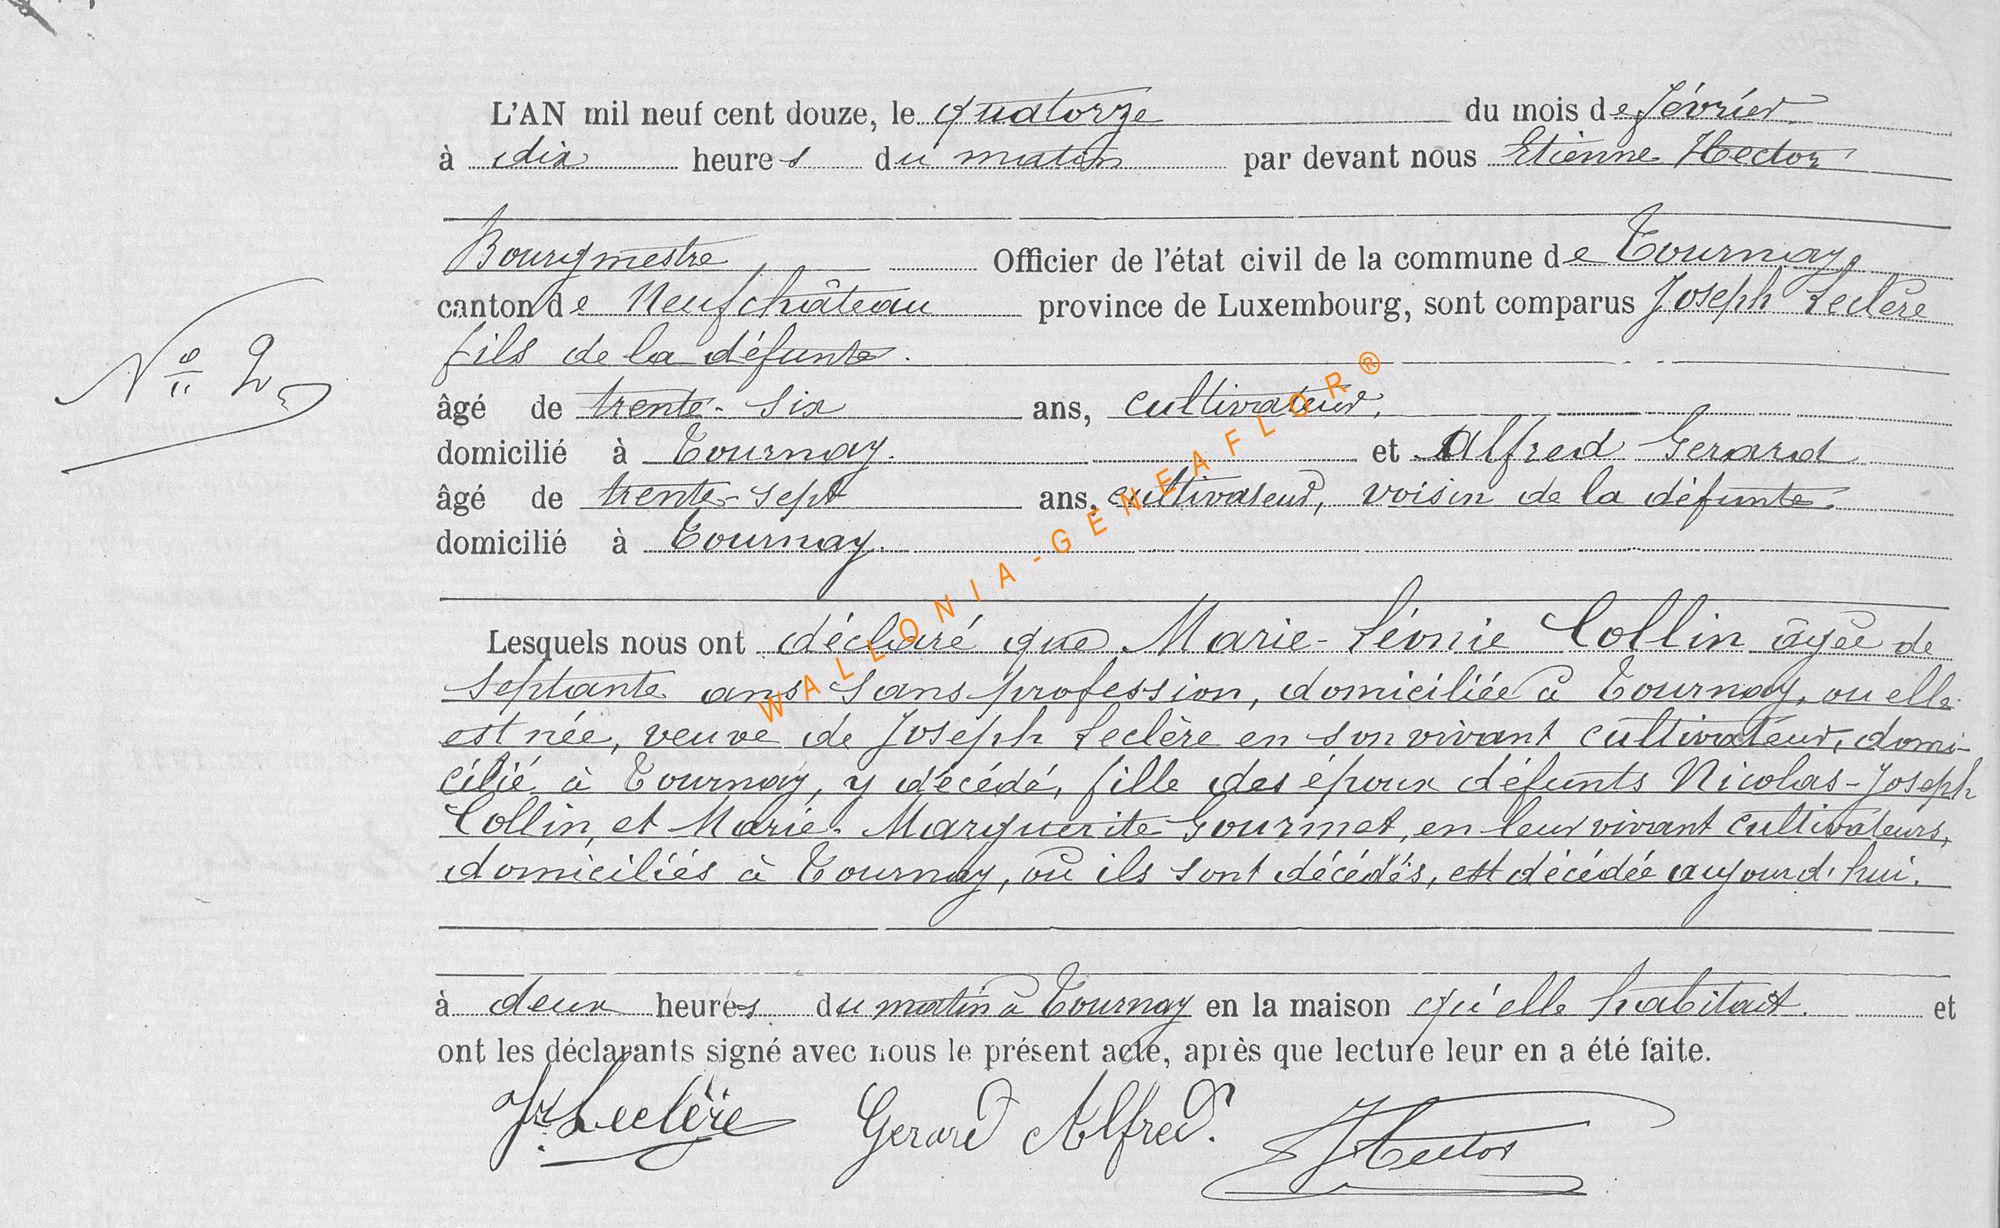 L'AN mil neuf cent douze, le quatorze du mois de février
à dix heures du matin par devant nous Etienne Hector
Bourgmestre Officier de l'état civil de la commune de Tournay,
canton de Neufchâteau province de Luxembourg, sont comparus Joseph Leclère
fils de la défunte.
âgé de trente-six ans, cultivateur,
domicilié à Tournay. et Alfred Gerard
âgé de trente-sept ans, cultivateur, voisin de la défunte.
domicilié à Tournay.
N° 2
Lesquels nous ont déclaré que Marie-Léonie Collin âgée de
septante ans sans profession, domiciliée à Tournay, ou elle
est née, veuve de Joseph Leclère en son vivant cultivateur, domi-
cilié à Tournay, y décédé, fille des époux défunts Nicolas-Joseph
Collin, et Marie-Marguerite Gourmet, en leur vivant cultivateurs,
domiciliés à Tournay, où ils sont décédés, est décédée aujourd'hui.
à deux heures du matin à Tournay en la maison qu'elle habitait. et
ont les déclarants signé avec nous le présent acte, après que lecture leur en a été faite.
Jh Leclère Gerard Alfred. Hector
WALLONIA-GENEAFLOR®